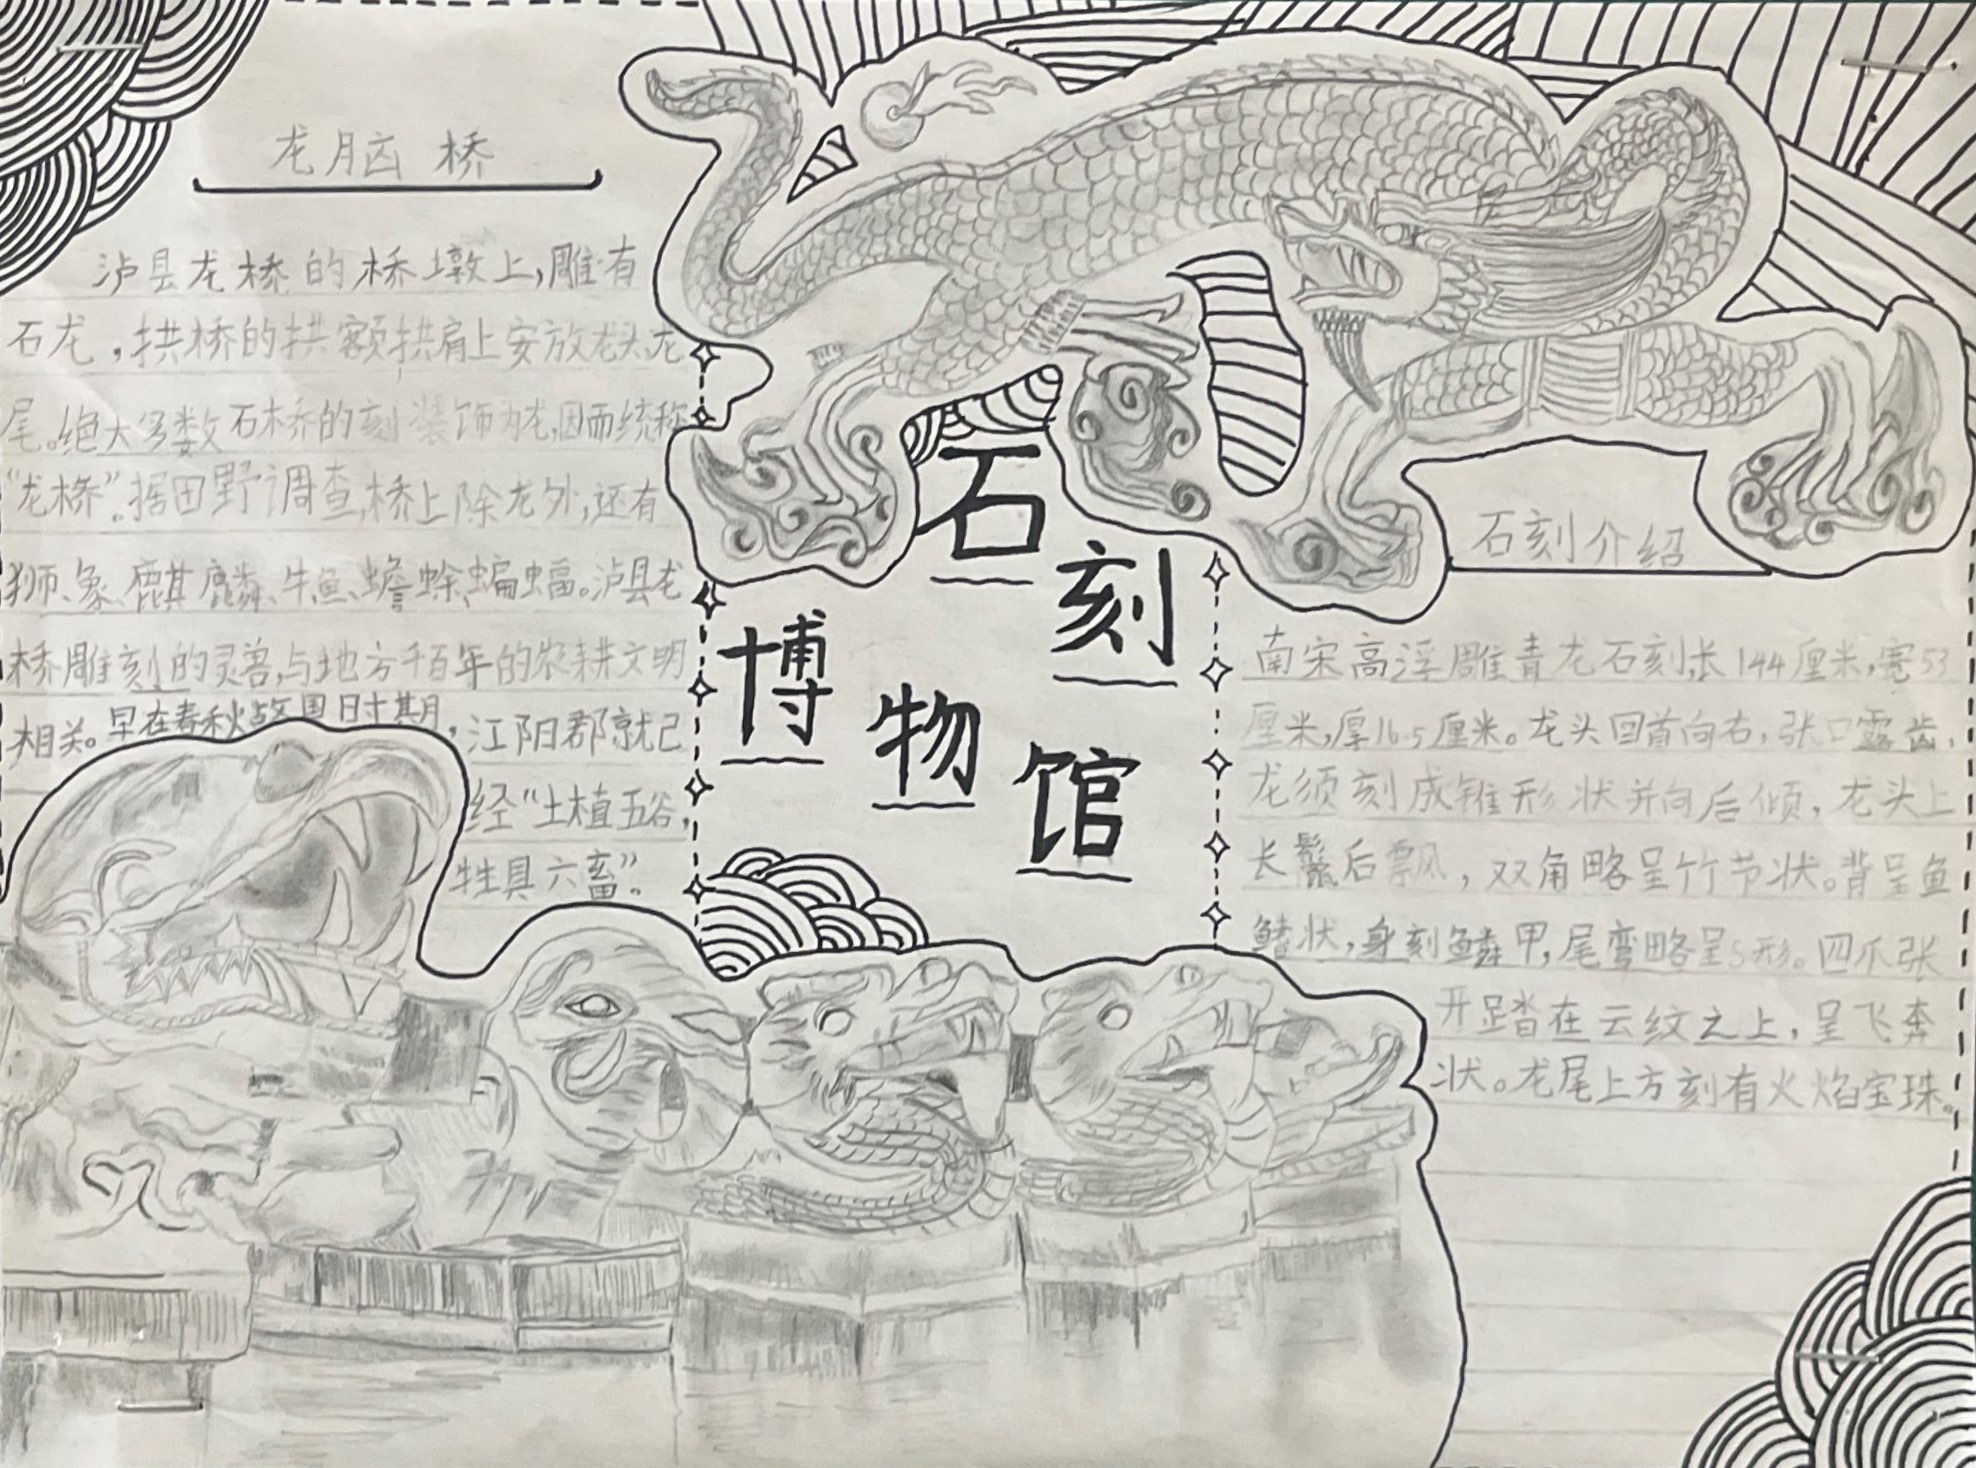 龙脑桥
泸县龙桥的桥墩上,雕有
石龙,拱桥的拱额拱肩上安放龙头龙
尾。绝大多数石桥的刻装饰为龙,因而统称
“龙桥”。据田野调查,桥上除龙外,还有
狮、象、麒麟、牛、鱼、蟾蜍、蝙蝠。泸县龙
桥雕刻的灵兽,与地方千百年的农耕文明
相关。早在春秋战国时期,江阳郡就已
经“土植五谷,
牲具六畜”。
石刻
博物馆
石刻介绍
南宋高浮雕青龙石刻,长144厘米,宽53
厘米,厚16.5厘米。龙头回首向右,张口露齿,
龙须刻成锥形状并向后倾,龙头上
长鬃后飘,双角略呈竹节状。背呈鱼
鳍状,身刻鳞甲,尾弯略呈S形。四爪张
开踏在云纹之上,呈飞奔
状。龙尾上方刻有火焰宝珠。